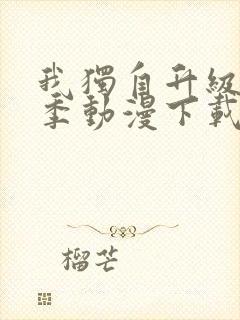 我獨自升級
季動漫下載
榴芒